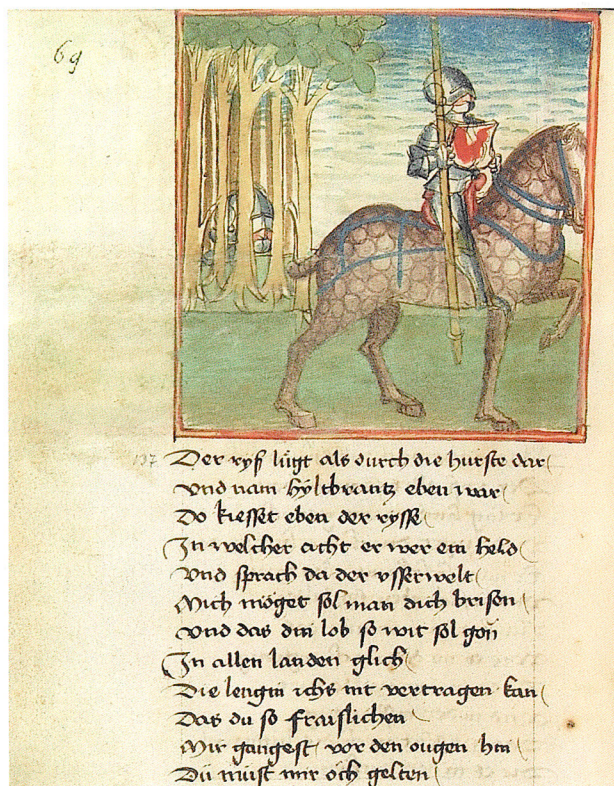 69
137 Der ryß lügt als durch die hurste dar
Vnd nam hyltbrantz eben war
Do kiesset eben der rysse
In welcher acht er wer ein held
Vnd sprach da der vsserwelt
Mich möget sol man dich brisen
Vnd das din lob so wit sol gon
In allen landen glich
Die lengin ichs nit vertragen kan
Das du so fraislichen
Mir gangest vor den ougen hin
Dü müst mir öch gelten